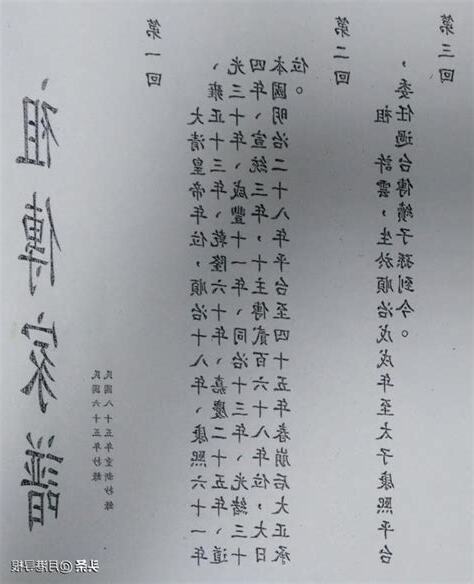 祖傳家譜
民國六十五年抄錄
民國八十五年重新抄錄
第一回
大清皇帝年位,順治十八年、康熙六十一年
、雍正十三年、乾隆六十年、嘉慶二十五年、道
光三十年、咸豐十一年、同治十三年、光緒三十
四年、宣統三年,十主傳貳百六十八年位,大日
本國明治二十八年平台至四十五年春崩后大正承
位。
第二回
祖 許雲,生於順治戊戌年至太子康熙平台
,委任過台傳續子孫到今。
第三回
头条 @月港导报